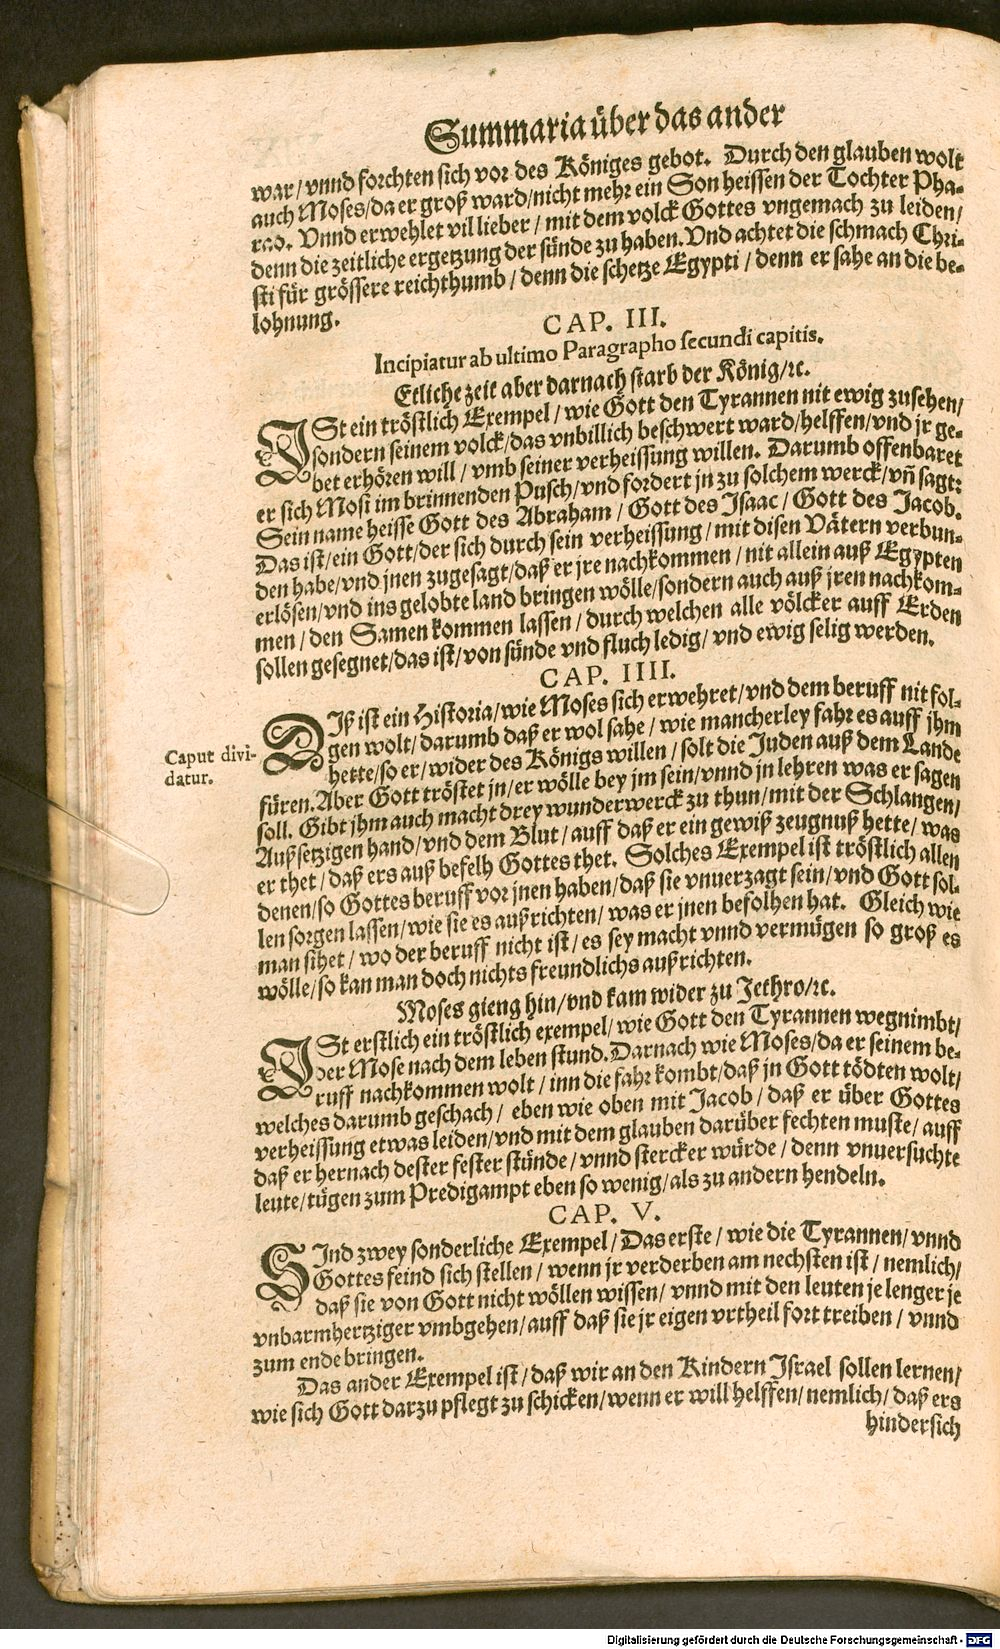 Summaria über das ander
war/ vnnd forchten sich vor des Königes gebot. Durch den glauben wolt
auch Moses/ da er groß ward/ nicht mehr ein Son heissen der Tochter Pha-
rao. Vnnd erwehlet vil lieber/ mit dem volck Gottes vngemach zu leiden/
denn die zeitliche ergetzung der sünde zu haben. Vnd achtet die schmach Chri-
sti für grössere reichthumb/ denn die schetze Egypti/ denn er sahe an die be-
lohnung.
CAP. III.
Incipiatur ab ultimo Paragrapho secundi capitis.
Etliche zeit aber darnach starb der König/ ꝛc.
ISt ein tröstlich Exempel/ wie Gott den Tyrannen nit ewig zusehen/
sondern seinem volck/ das vnbillich beschwert ward/ helffen/ vnd jr ge-
bet erhören will/ vmb seiner verheissung willen. Darumb offenbaret
er sich Mosi im brinnenden Pusch/ vnd fordert jn zu solchem werck/ vñ sagt:
Sein name heisse Gott des Abraham/ Gott des Isaac/ Gott des Jacob.
Das ist/ ein Gott/ der sich durch sein verheissung/ mit disen Vätern verbun-
den habe/ vnd jnen zugesagt/ daß er jre nachkommen/ nit allein auß Egypten
erlösen/ vnd ins gelobte land bringen wölle/ sondern auch auß jren nachkom-
men/ den Samen kommen lassen/ durch welchen alle völcker auff Erden
sollen gesegnet/ das ist/ von sünde vnd fluch ledig/ vnd ewig selig werden.
CAP. IIII.
DIß ist ein Historia/ wie Moses sich erwehret/ vnd dem beruff nit fol-
gen wolt/ darumb daß er wol sahe/ wie mancherley fahr es auff jhm
Caput divi-
datur.
hette/ so er/ wider des Königs willen/ solt die Juden auß dem Lande
füren. Aber Gott tröstet jn/ er wölle bey jm sein/ vnnd jn lehren was er sagen
soll. Gibt jhm auch macht drey wunderwerck zu thun/ mit der Schlangen/
Außsetzigen hand/ vnd dem Blut/ auff daß er ein gewiß zeugnuß hette/ was
er thet/ daß ers auß befelh Gottes thet. Solches Exempel ist tröstlich allen
denen/ so Gottes beruff vor jnen haben/ daß sie vnuerzagt sein/ vnd Gott sol-
len sorgen lassen/ wie sie es außrichten/ was er jnen befolhen hat. Gleich wie
man sihet/ wo der beruff nicht ist/ es sey macht vnnd vermügen so groß es
wölle/ so kan man doch nichts freundlichs außrichten.
Moses gieng hin/ vnd kam wider zu Jethro/ ꝛc.
ISt erstlich ein tröstlich exempel/ wie Gott den Tyrannen wegnimbt/
der Mose nach dem leben stund. Darnach wie Moses/ da er seinem be-
ruff nachkommen wolt/ inn die fahr kombt/ daß jn Gott tödten wolt/
welches darumb geschach/ eben wie oben mit Jacob/ daß er über Gottes
verheissung etwas leiden/ vnd mit dem glauben darüber fechten muste/ auff
daß er hernach dester fester stünde/ vnnd stercker würde/ denn vnuersuchte
leute/ tügen zum Predigampt eben so wenig/ als zu andern hendeln.
CAP. V.
SInd zwey sonderliche Exempel/ Das erste/ wie die Tyrannen/ vnnd
Gottes feind sich stellen/ wenn jr verderben am nechsten ist/ nemlich/
daß sie von Gott nicht wöllen wissen/ vnnd mit den leuten je lenger je
vnbarmhertziger vmbgehen/ auff daß sie jr eigen vrtheil fort treiben/ vnnd
zum ende bringen.
Das ander Exempel ist/ daß wir an den Kindern Israel sollen lernen/
wie sich Gott darzu pflegt zu schicken/ wenn er will helffen/ nemlich/ daß ers
hindersich
Digitalisierung gefördert durch die Deutsche Forschungsgemeinschaft - DFG